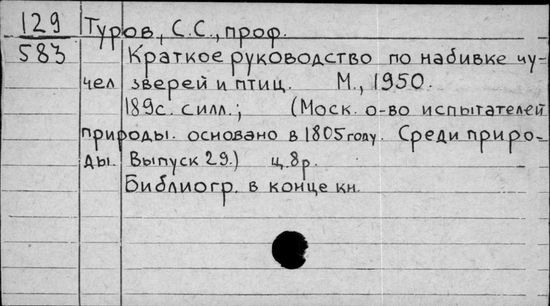 129 Туров, С.С., проф.
583 Краткое руководство по набивке чу-
чел зверей и птиц. М., 1950.
189с. силл.; (Моск. о-во испытателей
природы. основано в 1805 году. Среди приро-
ды. Выпуск 29.) ц. 8р.
Библиогр. в конце кн.